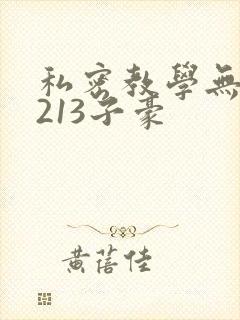 私密教學無
213子豪
黃蓓佳